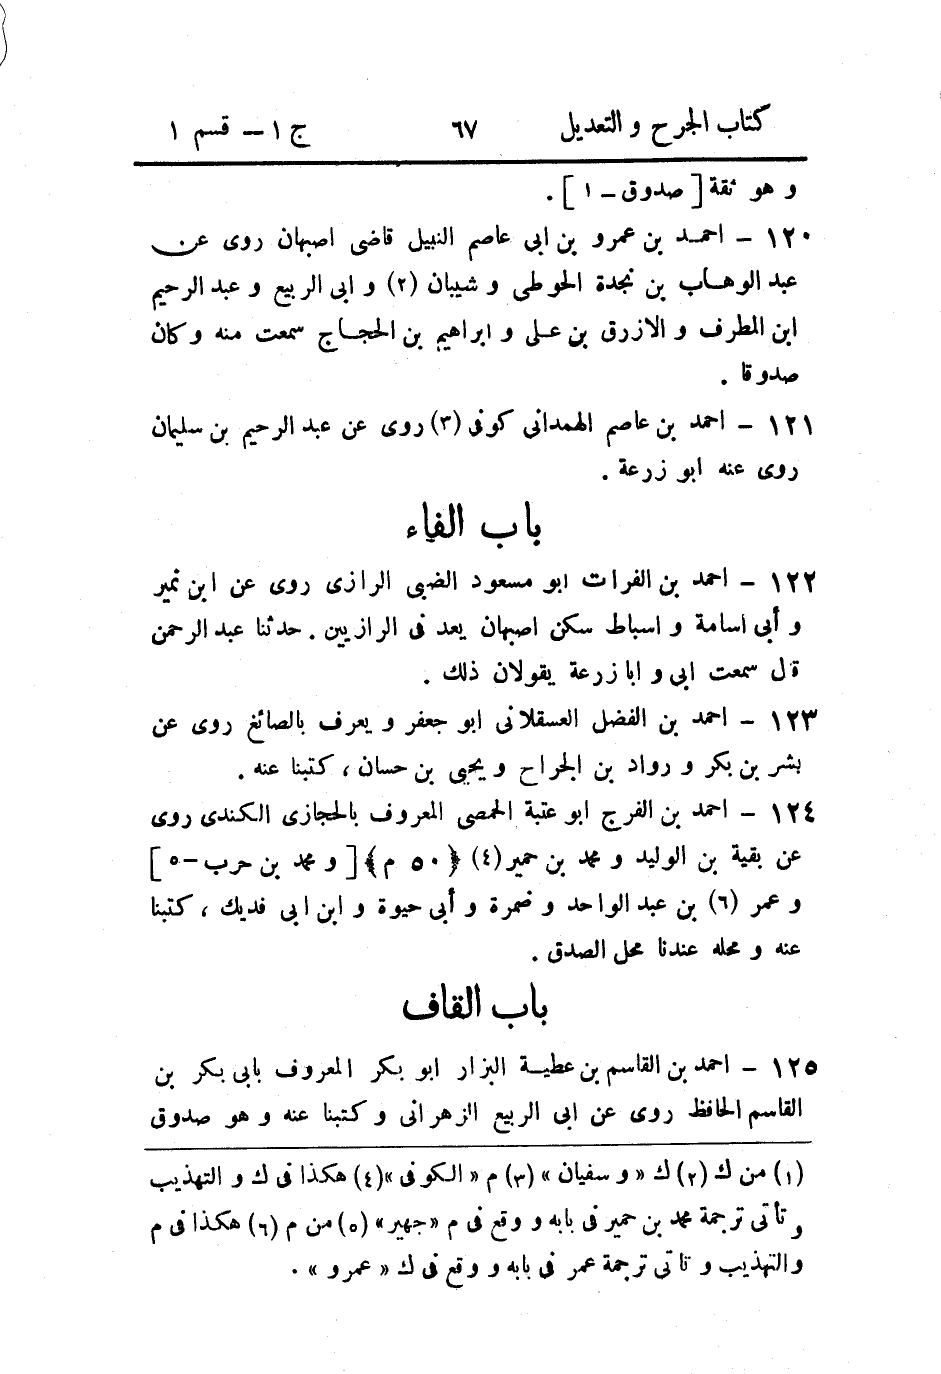 كتاب الجرح و التعديل ٦٧ ج ١ – قسم ١
و هو ثقة [ صدوق – ١ ] .
١٢٠ – احمد بن عمرو بن ابى عاصم النبيل قاضى اصبهان روى عن
عبد الوهاب بن نجدة الحوطى و شيبان (٢) و ابى الربيع و عبد الرحيم
ابن المطرف و الازرق بن على و ابراهيم بن الحجاج سمعت منه و كان
صدوقا .
١٢١ – احمد بن عاصم الهمدانى كوفى (٣) روى عن عبد الرحيم بن سليمان
روى عنه ابو زرعة .
باب الفاء
١٢٢ – احمد بن الفرات ابو مسعود الضبى الرازى روى عن ابن نمير
و أبى اسامة و اسباط سكن اصبهان يعد فى الرازيين . حدثنا عبد الرحمن
قال سمعت ابى و ابا زرعة يقولان ذلك .
١٢٣ – احمد بن الفضل العسقلانى ابو جعفر و يعرف بالصائغ روى عن
بشر بن بكر و رواد بن الجراح و يحيى بن حسان ، كتبنا عنه .
١٢٤ – احمد بن الفرج ابو عتبة الحمصى المعروف بالحجازى الكندى روى
عن بقية بن الوليد و محمد بن حمير (٤) ﴿٥٠ م﴾ [ و محمد بن حرب – ٥ ]
و عمر (٦) بن عبد الواحد و ضمرة و أبى حيوة و ابن ابى فديك ، كتبنا
عنه و محله عندنا محل الصدق .
باب القاف
١٢٥ – احمد بن القاسم بن عطية البزار ابو بكر المعروف بابى بكر بن
القاسم الحافظ روى عن ابى الربيع الزهرانى و كتبنا عنه و هو صدوق
(١) من ك (٢) ك « و سفيان » (٣) م « الكوفى » (٤) هكذا فى ك و التهذيب
و تأتى ترجمة محمد بن حمير فى بابه و وقع فى م « جهير » (٥) من م (٦) هكذا فى م
و التهذيب و تاتى ترجمة عمر فى بابه و وقع فى ك « عمرو » .